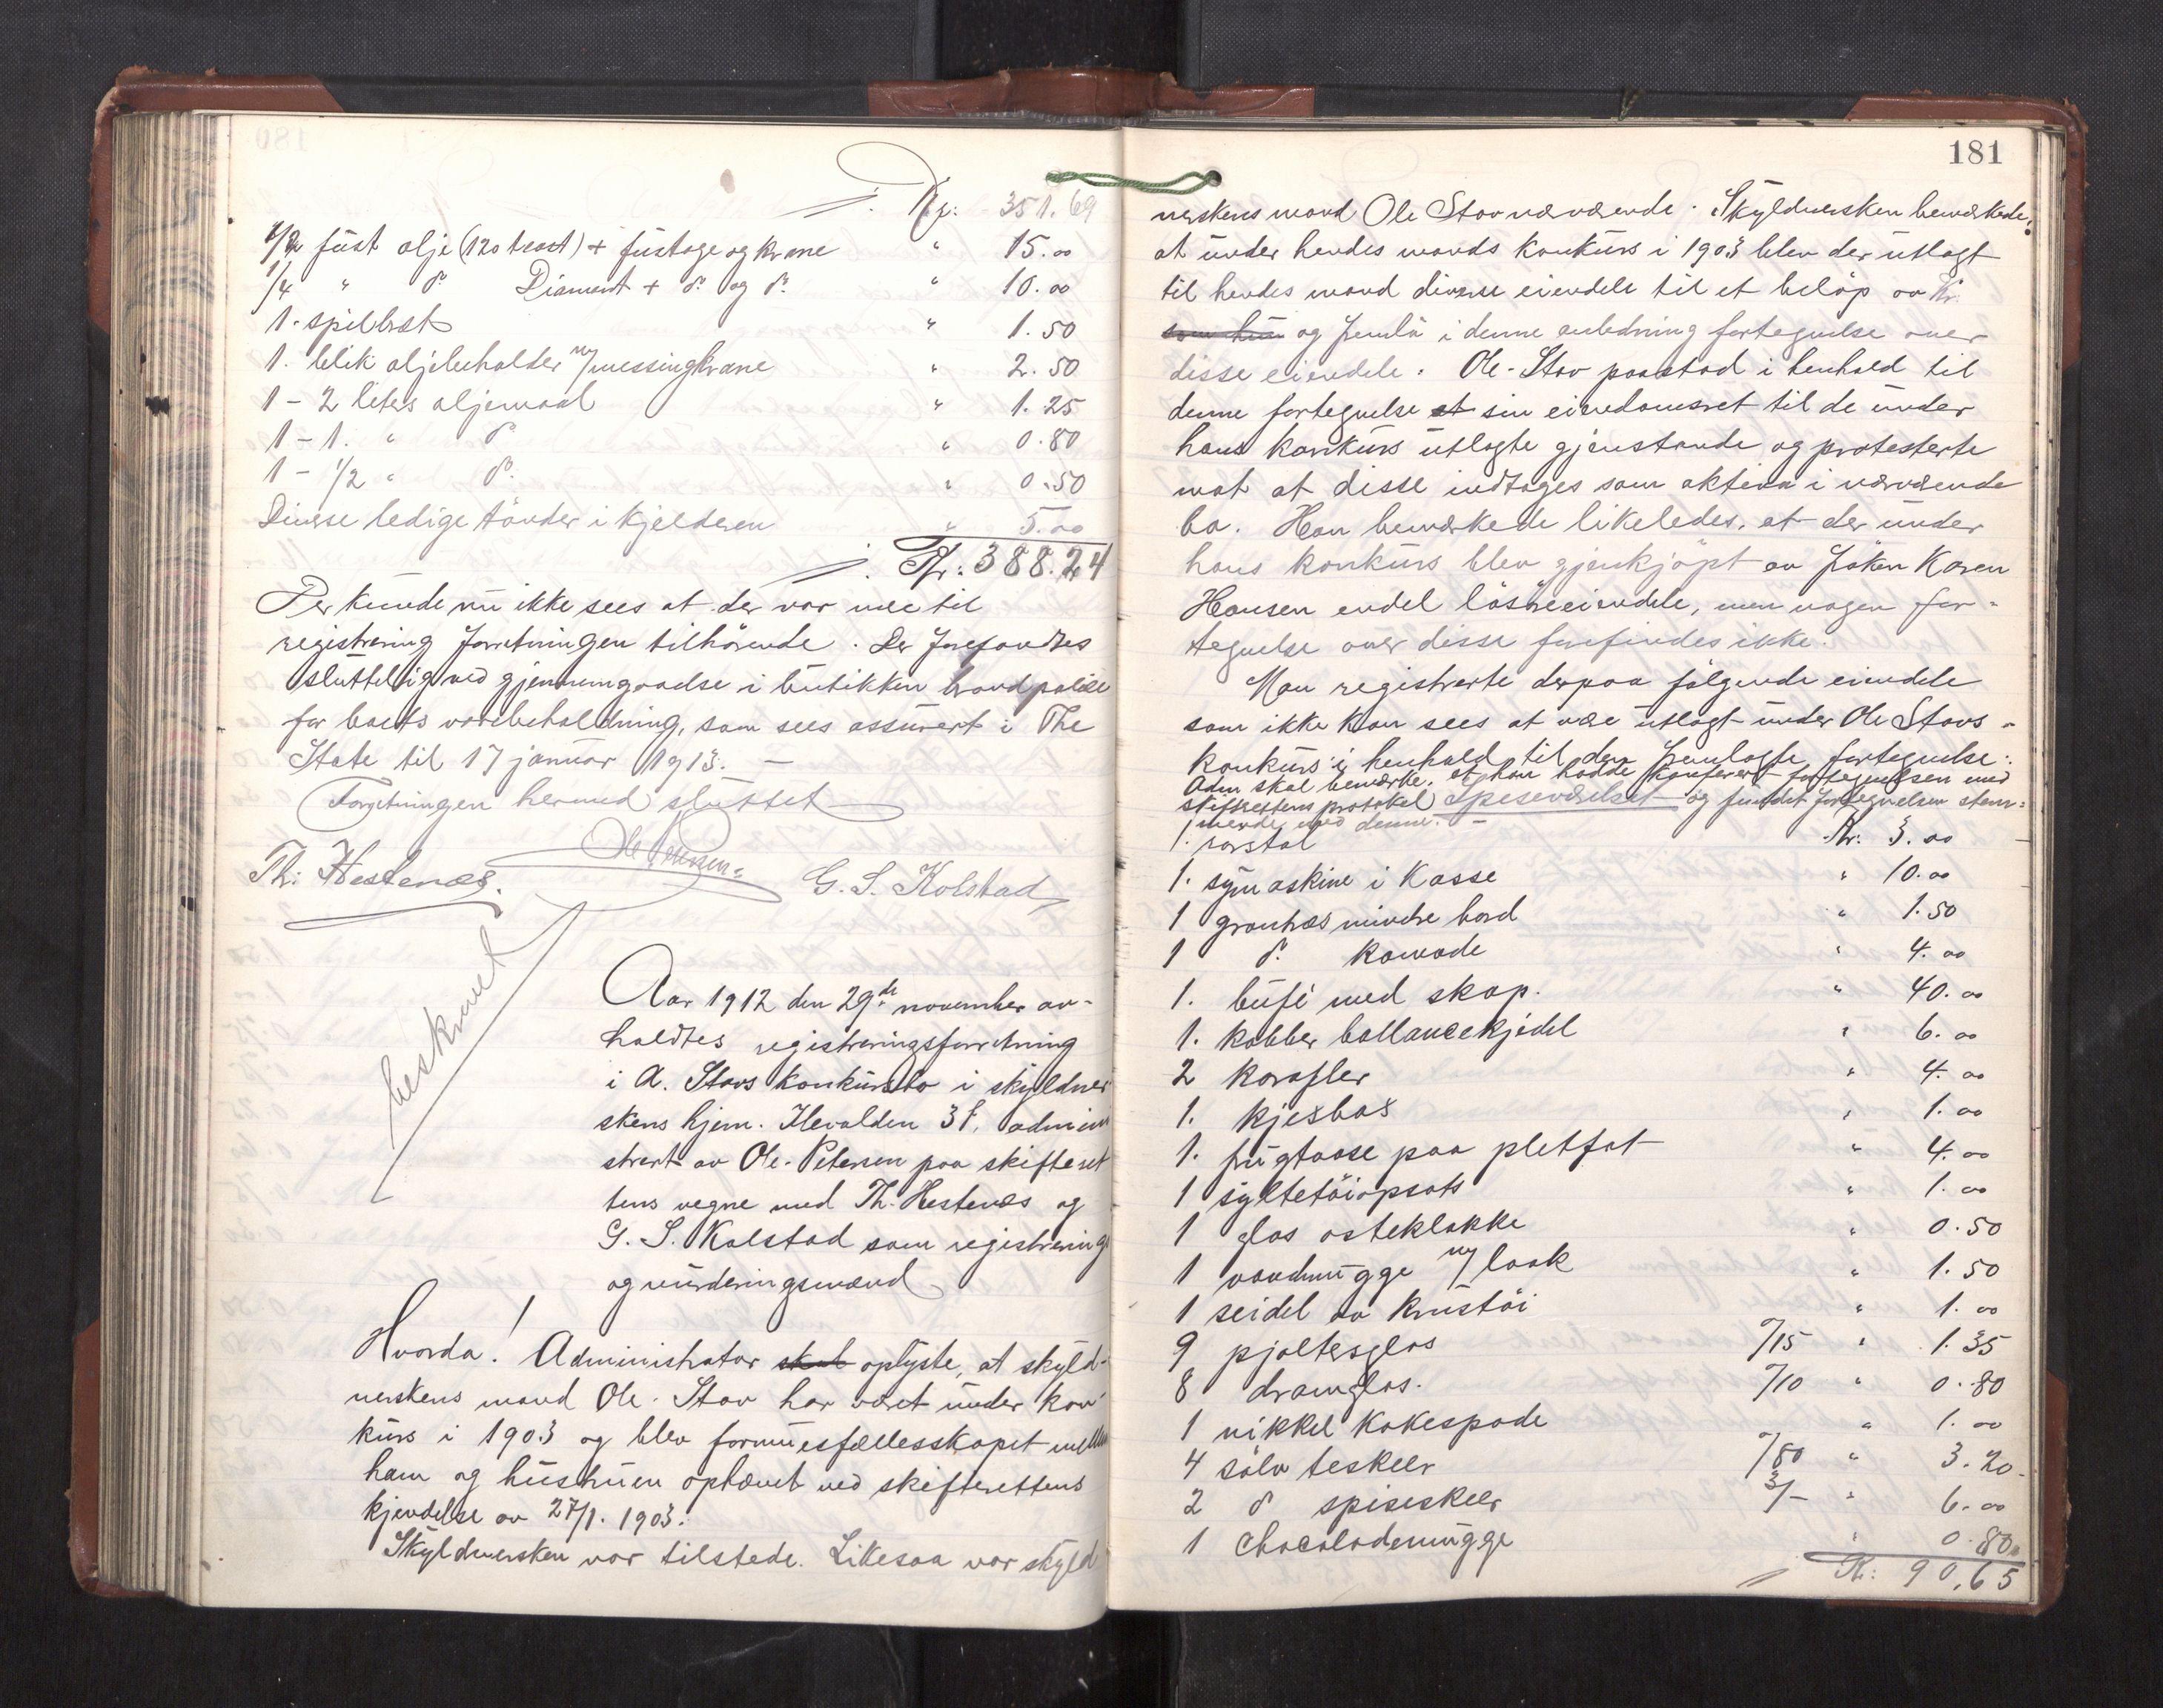 Kr: 351.69
1/2 fust olje (120 traat) + fustage og krane " 15.00
1/4 " do Diamant + do og do " 10.00
1. spilbret " 1.50
1. blik oljebeholder m/messingkrane " 2.50
1 - 2 liters oljemaal " 1.25
1 - 1. " do " 0.80
1 - 1/2 " do " 0.50
Diverse ledige tönder i kjelderen " 5.00
Kr: 388.24
Der kunde nu ikke sees at der var mere til
registrering forretningen tilhörende. Der forefandtes
sluttelig ved gjennemgaaelse i butikken brandpolice
for boets varebeholdning, som sees assurert i The
State til 17 januar 1913. —
Forretningen hermed sluttet
Ole Petersen
Th: Hestenæs. G. S. Kolstad
beskrevet
Aar 1912 den 29de november av-
holdtes registreringsforretning
i A. Stavs konkursbo i skyldner
skens hjem. Ilevolden 3f. admini
strert av Ole Petersen paa skifteret
tens vegne med Th. Hestenæs og
G. S. Kolstad som registrerings
og vurderingsmænd
Hvorda! Administrator skal oplyste, at skyld-
nerskens mand Ole Stav har været under kon
kurs i 1903 og blev formuesfællesskapet mellem
ham og hustruen ophævet ved skifterettens
kjendelse av 27/1. 1903.
Skyldnersken var tilstede. Likesaa var skyld
181
nerskens mand Ole Stav nærværende. Skyldnersken bemerkede,
at under hendes mands konkurs i 1903 blev der utlagt
til hendes mand diverse eiendele til et belöp av Kr.
som hun og fremla i denne anledning fortegnelse over
disse eiendele. Ole Stav paastod i henhold til
denne fortegnelse at sin eiendomsret til de under
hans konkurs utlagte gjenstande og protesterte
mot at disse indtages som aktiva i nærværende
bo. Han bemerkede likeledes, at der under
hans konkurs blev gjenkjöpt av fröken Karen
Hansen endel lösöreeiendele, men nogen for-
tegnelse over disse forefindes ikke.
Man registrerte derpaa fölgende eiendele
som ikke kan sees at være utlagt under Ole Stavs
konkurs i henhold til den fremlagte fortegnelse:
Adm skal bemerke, at han hadde konferert fortegnelsen med
skifterettens protokol Spiseværelset og fundet fortegnelsen stem-
mende med denne. —
1. rorstol Kr: 3.00
1. symaskine i kasse " 10.00
1 grantræs mindre bord " 1.50
1 do komode " 4.00
1. büfé med skap. " 40.00
1. kobber ballancekjedel " 6.00
2 karafler " 4.00
1. kjexbox " 1.00
1. frugtvase paa pletfat " 4.00
1 syltetöiopsats " 1.00
1 glas osteklokke " 0.50
1 vandmugge m/look " 1.50
1 seidel av krustöi " 1.00
9 pjoltersglas /15 " 1.35
8 dramglas. /10 " 0.80
1 nikkel kakespade " 1.00
4 sölv teskeer /80 " 3.20
2 do spiseskeer 3/- " 6.00
1 chocolademugge " 0.80
Kr: 90,65